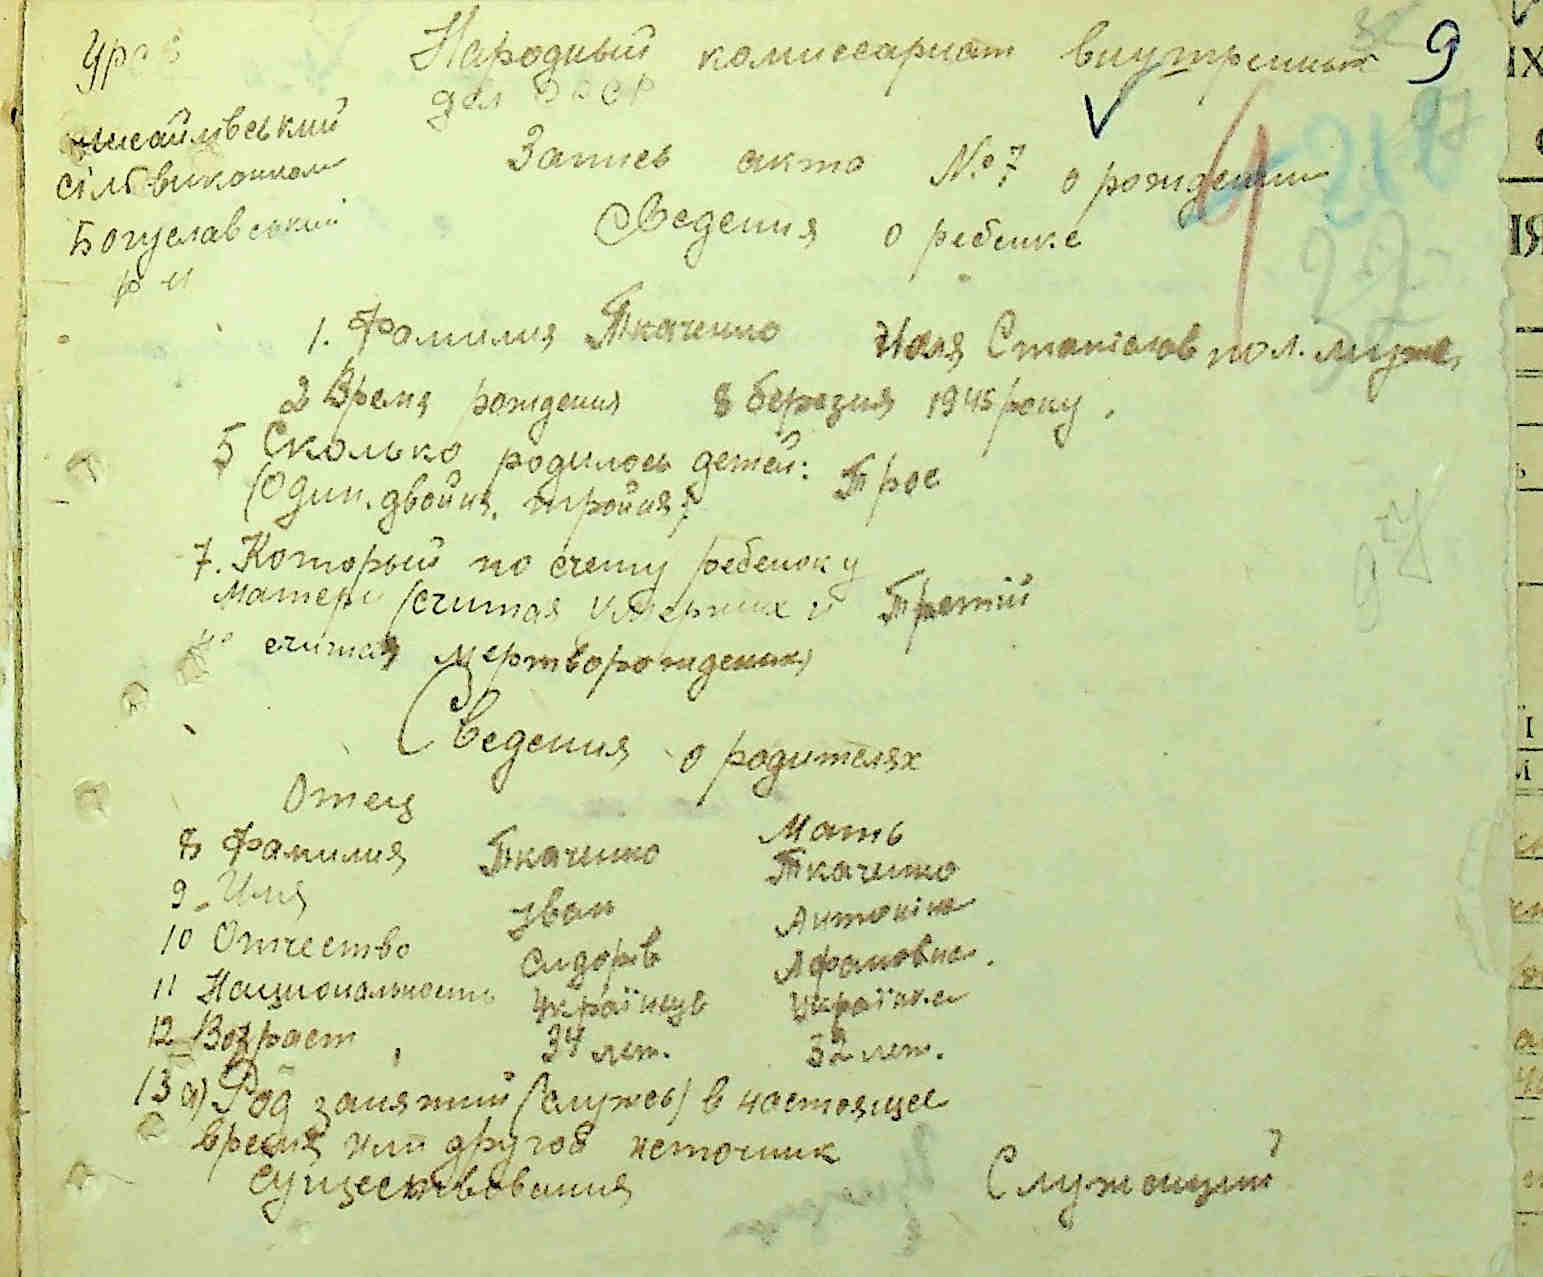 Народный комиссариат внутренных 9
дел СССР
михайлівський
сільвиконком
Богуславський
р-н
Запись акта № 7 о рождении
Сведения о ребенке
1. Фамилия Ткаченко Станіслав пол. муже.
2 Время рождения 8 березня 1945 року.
5 Сколько родилось детей: Трое
(Один. двойня. тройня)
7. Который по счету ребенок у
матери (считая умерших и Третій
не считая мертворожденных)
Сведения о родителях
Отец Мать
8 Фамилия Ткаченко Ткаченко
9. Имя Іван Антоніна
10 Отчество Сидорів Афановна.
11 Национальность Українць Українка
12 Возраст 34 лет. 32 лет.
13 а) Род занятий (службы) в настоящее
время или другой источник
существования Служащий